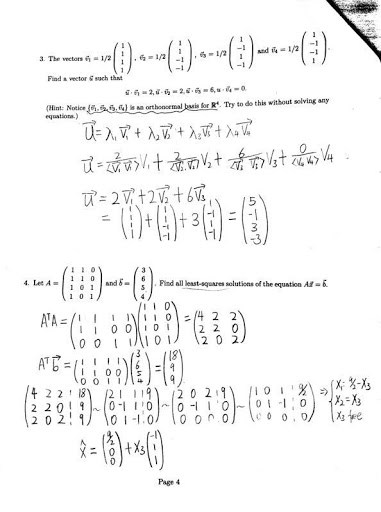 3. The vectors v⃗₁ = 1/2 (1 1 1 1), v⃗₂ = 1/2 (1 1 -1 -1), v⃗₃ = 1/2 (1 -1 1 -1) and v⃗₄ = 1/2 (1 -1 -1 1).
Find a vector u⃗ such that
u⃗ · v⃗₁ = 2, u⃗ · v⃗₂ = 2, u⃗ · v⃗₃ = 6, u · v⃗₄ = 0.
(Hint: Notice {v⃗₁, v⃗₂, v⃗₃, v⃗₄} is an orthonormal basis for ℝ⁴. Try to do this without solving any
equations.)
U⃗ = λ₁V⃗₁ + λ₂V⃗₂ + λ₃V⃗₃ + λ₄V⃗₄
U⃗ = 2/⟨V₁ V₁⟩ V₁ + 2/⟨V₂, V₂⟩ V₂ + 6/⟨V₃ V₃⟩ V₃ + 0/⟨V₄ V₄⟩ V₄
U⃗ = 2V⃗₁ + 2V⃗₂ + 6V⃗₃
= (1 1 1 1) + (1 1 -1 -1) + 3(1 -1 1 -1) = (5 -1 3 -3)
4. Let A = (1 1 0; 1 1 0; 1 0 1; 1 0 1) and b⃗ = (3 6 5 4). Find all least-squares solutions of the equation Ax⃗ = b⃗.
AᵀA = (1 1 1 1; 1 1 0 0; 0 0 1 1)(1 1 0; 1 1 0; 1 0 1; 1 0 1) = (4 2 2; 2 2 0; 2 0 2)
Aᵀb⃗ = (1 1 1 1; 1 1 0 0; 0 0 1 1)(3 6 5 4) = (18 9 9)
(4 2 2 | 18; 2 2 0 | 9; 2 0 2 | 9) ~ (2 1 1 | 9; 0 -1 1 | 0; 0 1 -1 | 0) ~ (2 0 2 | 9; 0 -1 1 | 0; 0 0 0 | 0) ~ (1 0 1 | 9/2; 0 1 -1 | 0; 0 0 0 | 0) ⇒ { X₁ = 9/2 - X₃ X₂ = X₃ X₃ free
x̂ = (9/2 0 0) + X₃(-1 1 1)
Page 4